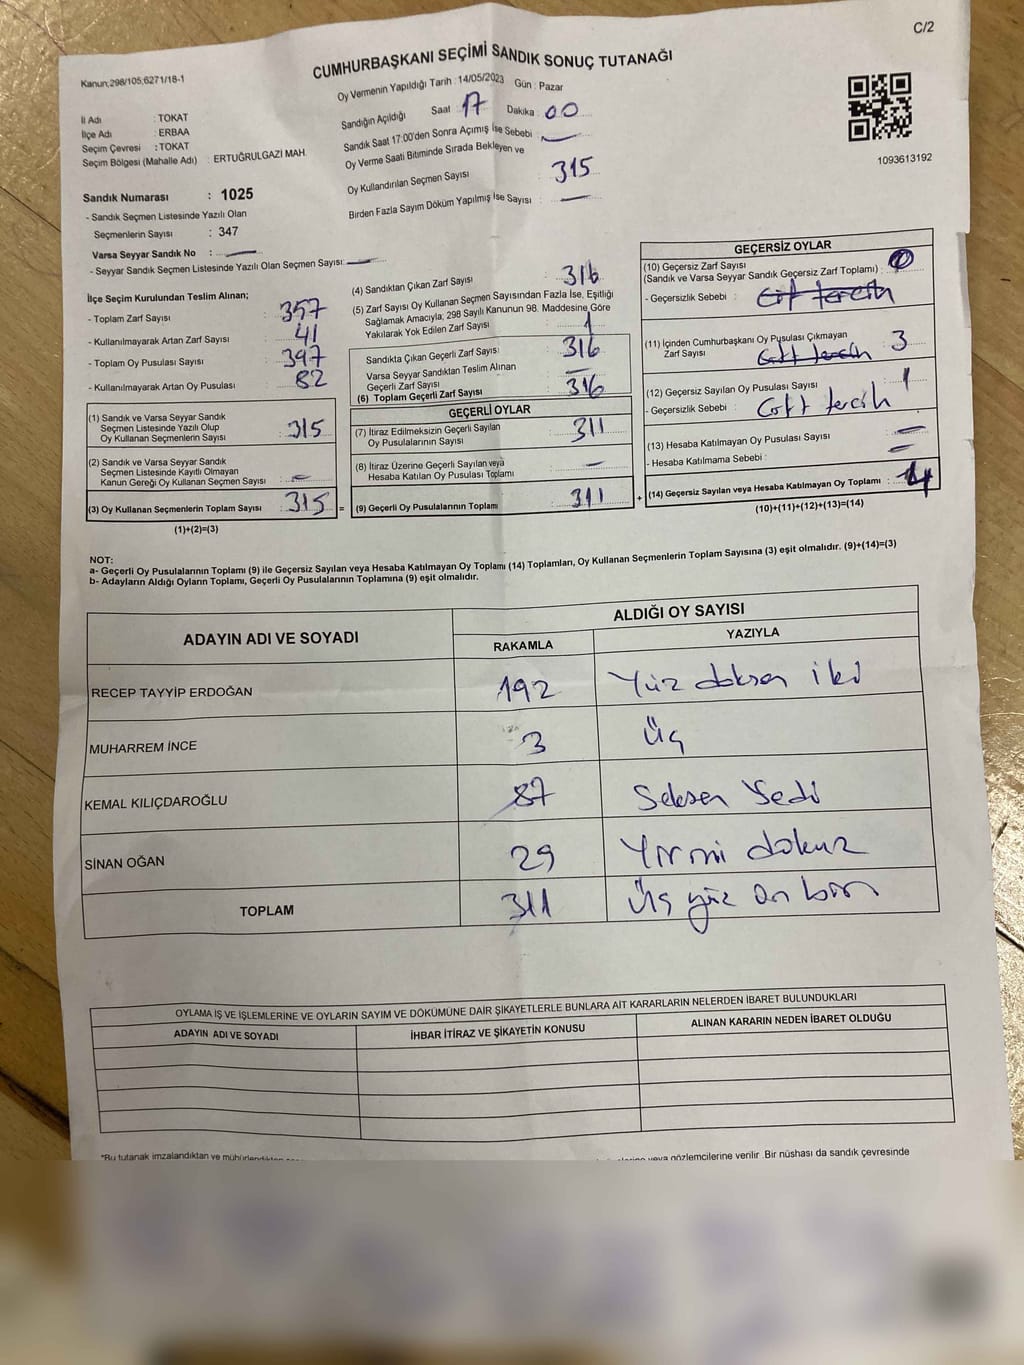 C/2
Kanun;298/105;6271/18-1
CUMHURBAŞKANI SEÇİMİ SANDIK SONUÇ TUTANAĞI
Oy Vermenin Yapıldığı Tarih : 14/05/2023 Gün : Pazar
İl Adı : TOKAT
İlçe Adı : ERBAA
Seçim Çevresi : TOKAT
Seçim Bölgesi (Mahalle Adı) : ERTUĞRULGAZİ MAH.
Sandığın Açıldığı Saat : 17 Dakika : 00
Sandık Saat 17:00'den Sonra Açımış İse Sebebi : —
Oy Verme Saati Bitiminde Sırada Bekleyen ve
Oy Kullandırılan Seçmen Sayısı : 315
Birden Fazla Sayım Döküm Yapılmış İse Sayısı : —
1093613192
Sandık Numarası : 1025
- Sandık Seçmen Listesinde Yazılı Olan
Seçmenlerin Sayısı : 347
Varsa Seyyar Sandık No : —
- Seyyar Sandık Seçmen Listesinde Yazılı Olan Seçmen Sayısı: —
İlçe Seçim Kurulundan Teslim Alınan;
- Toplam Zarf Sayısı : 357
- Kullanılmayarak Artan Zarf Sayısı : 41
- Toplam Oy Pusulası Sayısı : 397
- Kullanılmayarak Artan Oy Pusulası : 82
(1) Sandık ve Varsa Seyyar Sandık
Seçmen Listesinde Yazılı Olup
Oy Kullanan Seçmenlerin Sayısı : 315
(2) Sandık ve Varsa Seyyar Sandık
Seçmen Listesinde Kayıtlı Olmayan
Kanun Gereği Oy Kullanan Seçmen Sayısı : —
(3) Oy Kullanan Seçmenlerin Toplam Sayısı : 315 =
(1)+(2)=(3)
(4) Sandıktan Çıkan Zarf Sayısı : 316
(5) Zarf Sayısı Oy Kullanan Seçmen Sayısından Fazla İse, Eşitliği
Sağlamak Amacıyla; 298 Sayılı Kanunun 98. Maddesine Göre
Yakılarak Yok Edilen Zarf Sayısı : 1
Sandıkta Çıkan Geçerli Zarf Sayısı : 316
Varsa Seyyar Sandıktan Teslim Alınan
Geçerli Zarf Sayısı : —
(6) Toplam Geçerli Zarf Sayısı : 316
GEÇERLİ OYLAR
(7) İtiraz Edilmeksizin Geçerli Sayılan
Oy Pusulalarının Sayısı : 311
(8) İtiraz Üzerine Geçerli Sayılan veya
Hesaba Katılan Oy Pusulası Toplamı : —
(9) Geçerli Oy Pusulalarının Toplamı : 311 +
GEÇERSİZ OYLAR
(10) Geçersiz Zarf Sayısı
(Sandık ve Varsa Seyyar Sandık Geçersiz Zarf Toplamı) : 0
- Geçersizlik Sebebi : Çift tercih
(11) İçinden Cumhurbaşkanı Oy Pusulası Çıkmayan
Zarf Sayısı : Çift tercih 3
(12) Geçersiz Sayılan Oy Pusulası Sayısı : 1
- Geçersizlik Sebebi : Çift tercih
(13) Hesaba Katılmayan Oy Pusulası Sayısı : —
- Hesaba Katılmama Sebebi : —
(14) Geçersiz Sayılan veya Hesaba Katılmayan Oy Toplamı : 4
(10)+(11)+(12)+(13)=(14)
NOT:
a- Geçerli Oy Pusulalarının Toplamı (9) ile Geçersiz Sayılan veya Hesaba Katılmayan Oy Toplamı (14) Toplamları, Oy Kullanan Seçmenlerin Toplam Sayısına (3) eşit olmalıdır. (9)+(14)=(3)
b- Adayların Aldığı Oyların Toplamı, Geçerli Oy Pusulalarının Toplamına (9) eşit olmalıdır.
ADAYIN ADI VE SOYADI ALDIĞI OY SAYISI
RAKAMLA YAZIYLA
RECEP TAYYİP ERDOĞAN 192 Yüz doksan iki
MUHARREM İNCE 3 Üç
KEMAL KILIÇDAROĞLU 87 Seksen Yedi
SİNAN OĞAN 29 Yirmi dokuz
TOPLAM 311 Üç yüz on bir
OYLAMA İŞ VE İŞLEMLERİNE VE OYLARIN SAYIM VE DÖKÜMÜNE DAİR ŞİKAYETLERLE BUNLARA AİT KARARLARIN NELERDEN İBARET BULUNDUKLARI
ADAYIN ADI VE SOYADI İHBAR İTİRAZ VE ŞİKAYETİN KONUSU ALINAN KARARIN NEDEN İBARET OLDUĞU
*Bu tutanak imzalandıktan ve veya gözlemcilerine verilir. Bir nüshası da sandık çevresinde